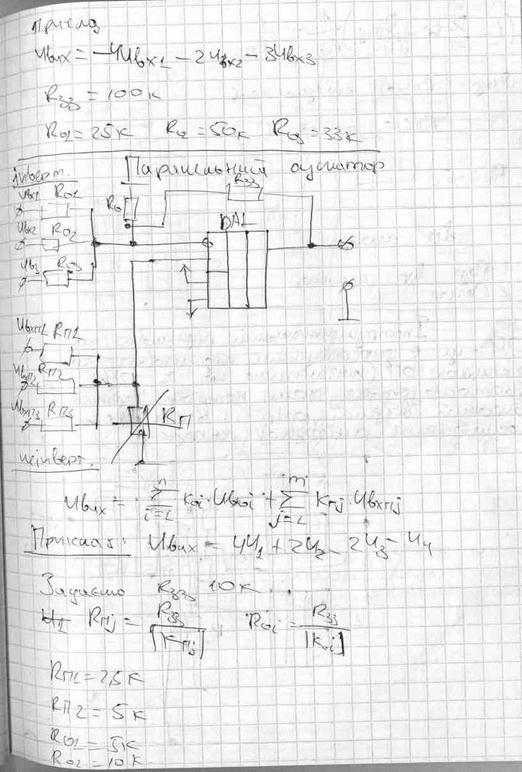 Приклад
Uвих = -4Uвх1 - 2Uвх2 - 3Uвх3
Rзз = 100к
R01 = 25к R02 = 50к R03 = 33к
інверт. Паралельний суматор
Uвх1 R01 R0 Rзз
DA1
Uвх2 R02
Uвх3 R03
Uвхп1 Rп1
Uвхп2 Rп2
Uвхп3 Rп3 Rп
неінверт.
Uвих = Σ(i=1..n) K0i · Uвх0i + Σ(j=1..m) Kпj · Uвхпj
Приклад: Uвих = 4U1 + 2U2 - 2U3 - U4
Задаємо Rзз 10к
Rпj = Rзз / |Kпj| R0i = Rзз / |K0i|
Rп1 = 2,5к
Rп2 = 5к
R01 = 5к
R02 = 10к